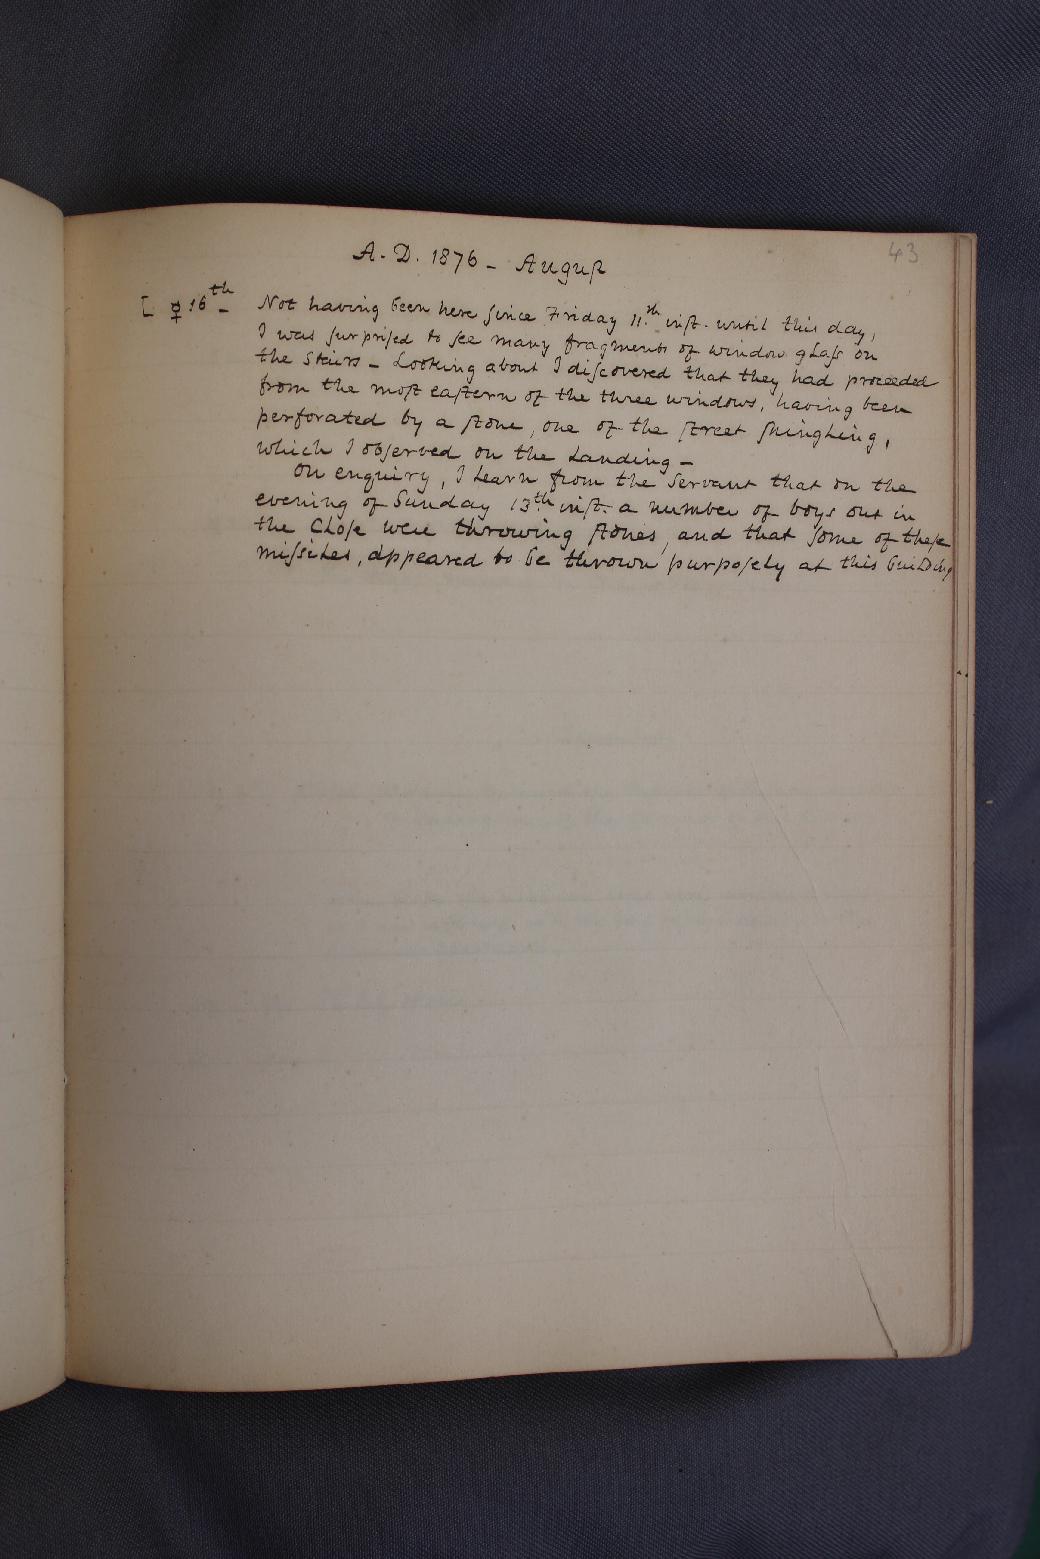 43
A. D. 1876 - Auguſt
[ ☿ 16th Not having been here ſince Friday 11.th inſt. until this day,
I was ſurpriſed to ſee many fragments of window glaſs on
the Stairs - Looking about I diſcovered that they had proceeded
from the moſt eaſtern of the three windows, having been
perforated by a ſtone, one of the ſtreet ſhingling,
which I obſerved on the Landing -
On enquiry, I Learn from the Servant that on the
evening of Sunday 13th inſt. a number of boys out in
the Cloſe were throwing ſtones, and that ſome of theſe
miſſiles, appeared to be thrown purpoſely at this building